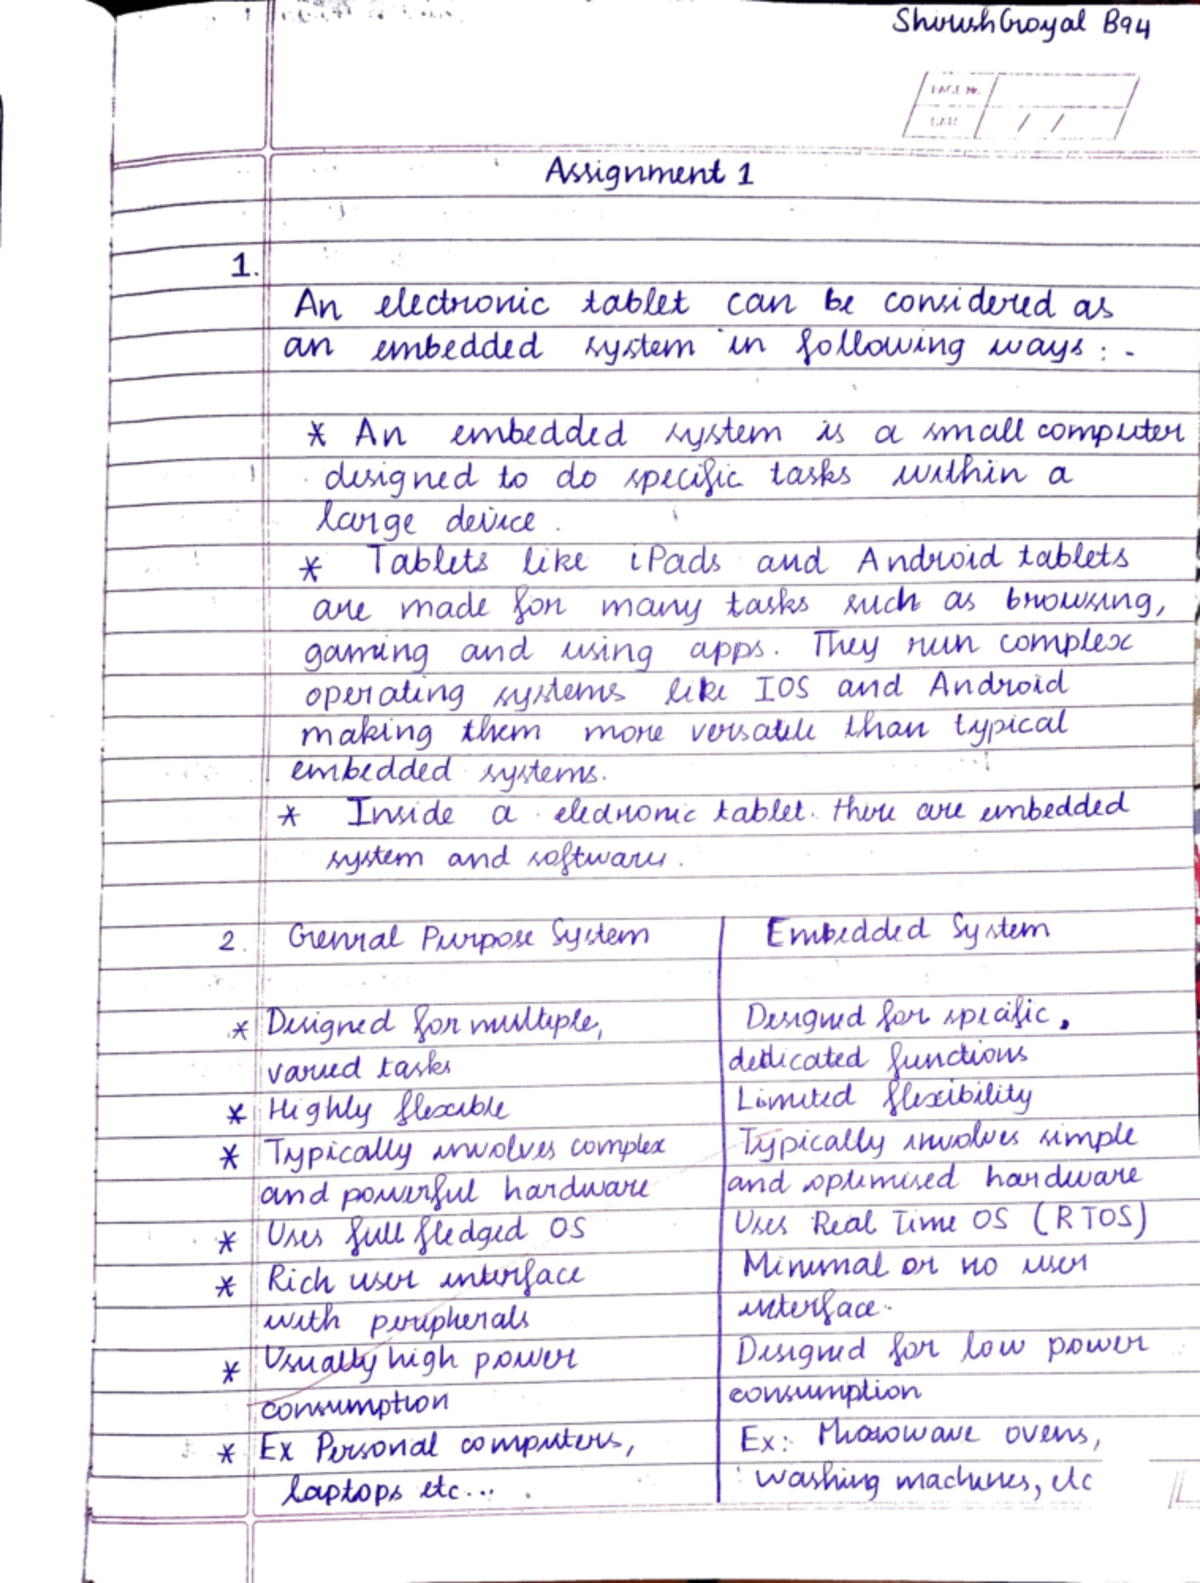 Shirish Goyal B94
PAGE No.
DATE / /
Assignment 1
1.
An electronic tablet can be considered as
an embedded system in following ways : -
* An embedded system is a small computer
designed to do specific tasks within a
large device .
* Tablets like iPads and Android tablets
are made for many tasks such as browsing,
gaming and using apps. They run complex
operating systems like IOS and Android
making them more versatile than typical
embedded systems.
* Inside a electronic tablet there are embedded
system and software .
2. General Purpose System | Embedded System
* Designed for multiple, | Designed for specific ,
varied tasks | dedicated functions
* Highly flexible | Limited flexibility
* Typically involves complex | Typically involves simple
and powerful hardware | and optimised hardware
* Uses full fledged OS | Uses Real Time OS (RTOS)
* Rich user interface | Minimal or no user
with peripherals | interface.
* Usually high power | Designed for low power
consumption | consumption
* Ex Personal computers, | Ex: Microwave ovens,
laptops etc... . | washing machines, etc